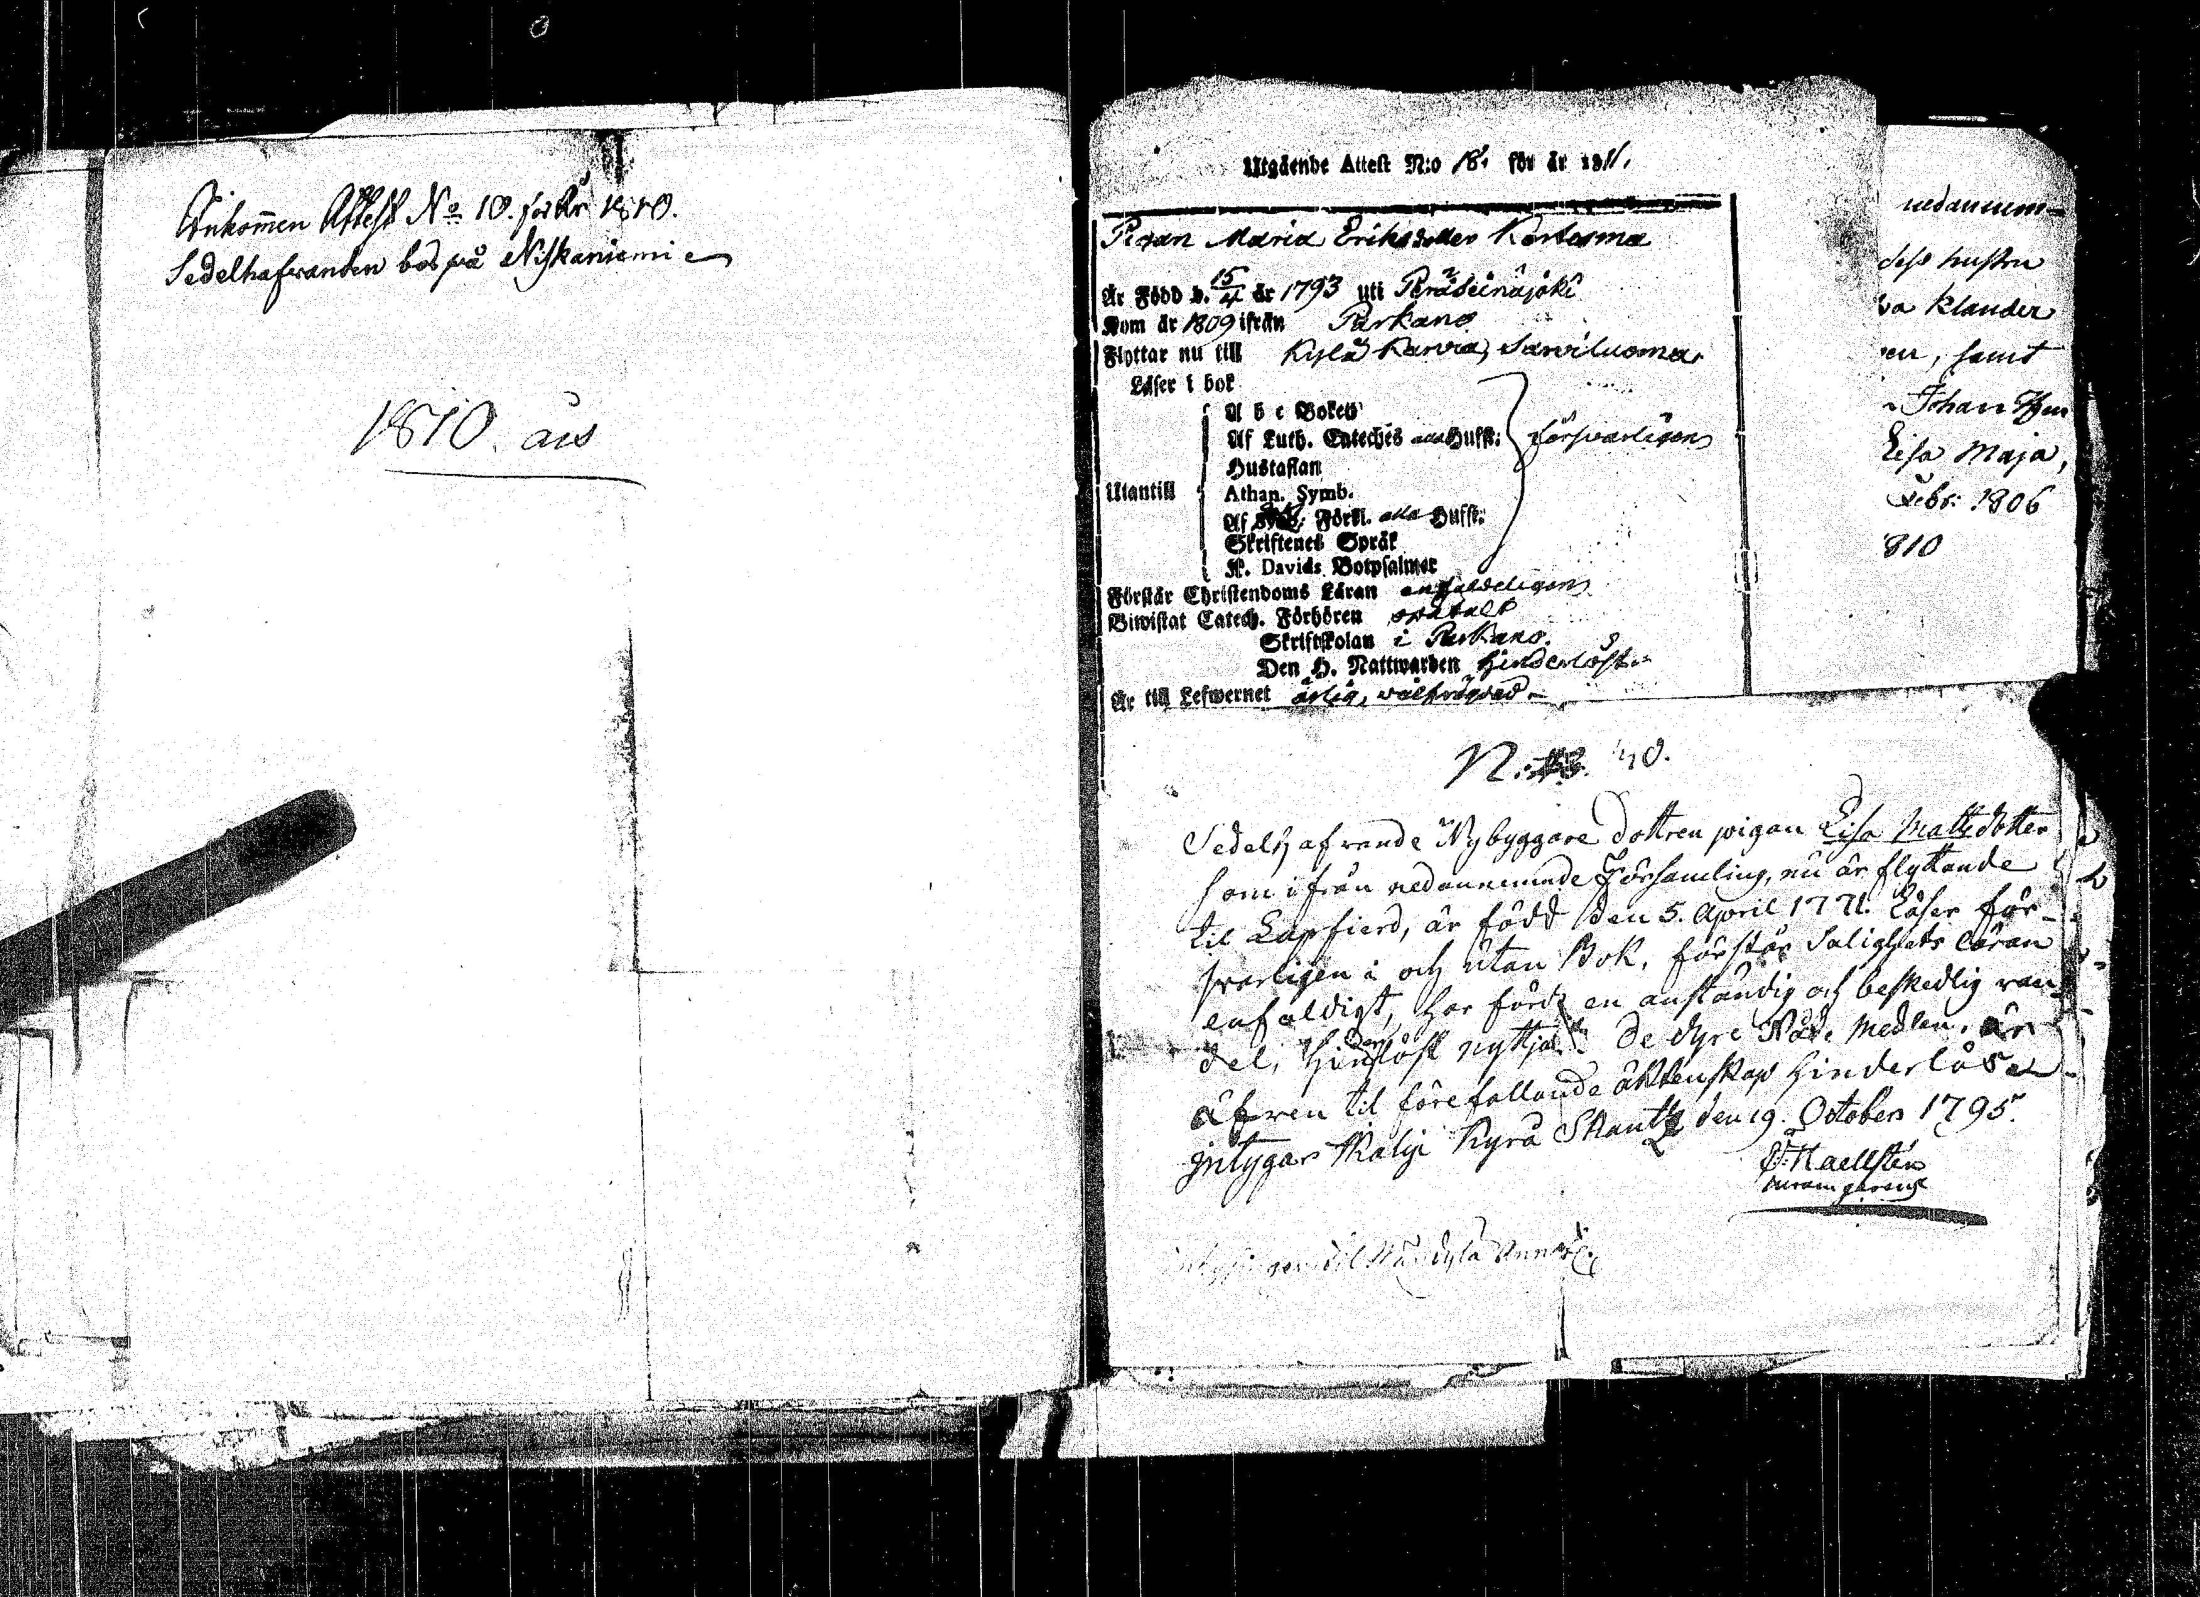 Ankommen Attest No 10. för År 1810.
Sedelhafvanden bor på Niskaniemi
1810. års
Utgående Attest N:o 18. för år 1811.
Pigan Maria Eriksdotter Kortesma
Är Född d. 15/4 år 1793 uti Peräseinäjoki
Kom år 1809 ifrån Parkano
Flyttar nu till Kylä Karvia, Sarviluoma.
Läser i bok
A b c Boken
Af Luth. Cateches alla Hufst: försvarligen
Hustaflan
Utantill Athan. Symb.
Af Förkl. alla Hufst:
Skriftenes Språk
K. Davids Botpsalmer
Förstår Christendoms Läran enfaldeligen
Biwistat Catech. Förhören
Skriftskolan i Parkano.
Den H. Nattwarden hinderlöst
Är till Lefwernet ärlig, välfrägdad
nedannum-
dess hustru
va Klauder
en, samt
Johan
Lisa Maja,
Febr: 1806
810
N: 40.
Sedelhafvande Nybyggare Dottren pigan Lisa Mattsdotter
som ifrån nedannemnde Församling, nu är flyttande
til Lapfierd, är född den 5. April 1771. Läser för-
svarligen i och utan Bok, förstår Salighets läran
enfaldigt, har fördt en anständig och beskedlig van-
del, Hinderlöst nyttjat De dyre Nåde Medlen. är
äfwen til förefallande äktenskap Hinderlös
intygar Kalje Kyrå Skantz den 19. October 1795.
Kaellsten